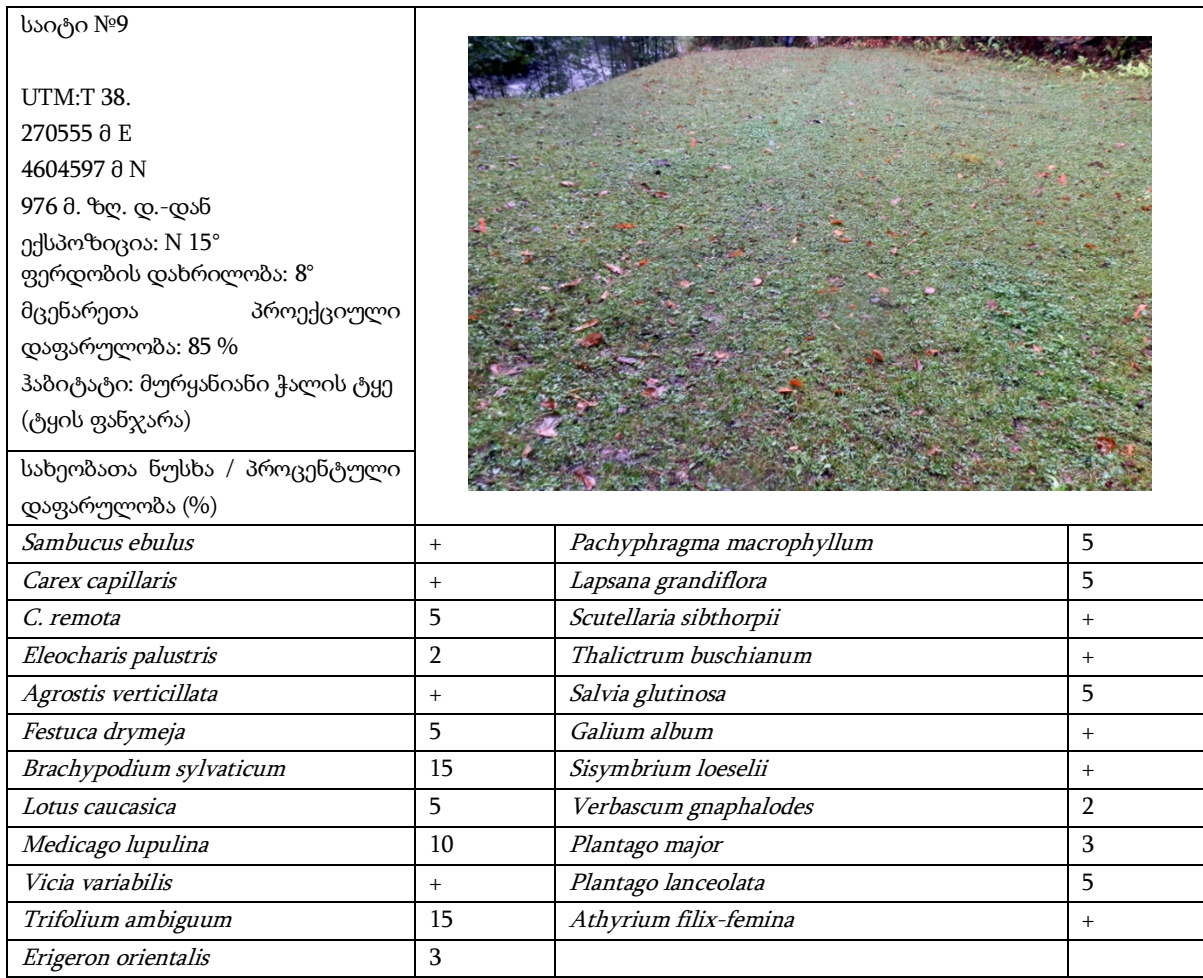 საიტი №9
UTM:T 38.
270555 მ E
4604597 მ N
976 მ. ზღ. დ.-დან
ექსპოზიცია: N 15°
ფერდობის დახრილობა: 8°
მცენარეთა პროექციული
დაფარულობა: 85 %
ჰაბიტატი: მურყანიანი ჭალის ტყე
(ტყის ფანჯარა)
სახეობათა ნუსხა / პროცენტული
დაფარულობა (%)
Sambucus ebulus + Pachyphragma macrophyllum 5
Carex capillaris + Lapsana grandiflora 5
C. remota 5 Scutellaria sibthorpii +
Eleocharis palustris 2 Thalictrum buschianum +
Agrostis verticillata + Salvia glutinosa 5
Festuca drymeja 5 Galium album +
Brachypodium sylvaticum 15 Sisymbrium loeselii +
Lotus caucasica 5 Verbascum gnaphalodes 2
Medicago lupulina 10 Plantago major 3
Vicia variabilis + Plantago lanceolata 5
Trifolium ambiguum 15 Athyrium filix-femina +
Erigeron orientalis 3